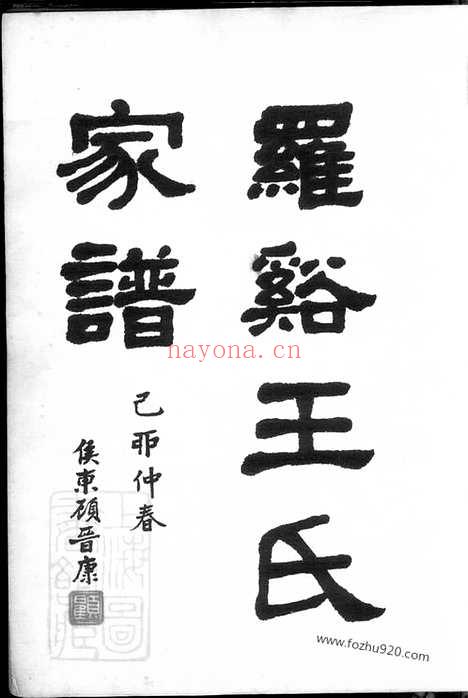 羅谿王氏
家譜
己卯仲春
侯東顧晉康
顧
hayona.cn
www.fozhu920.com